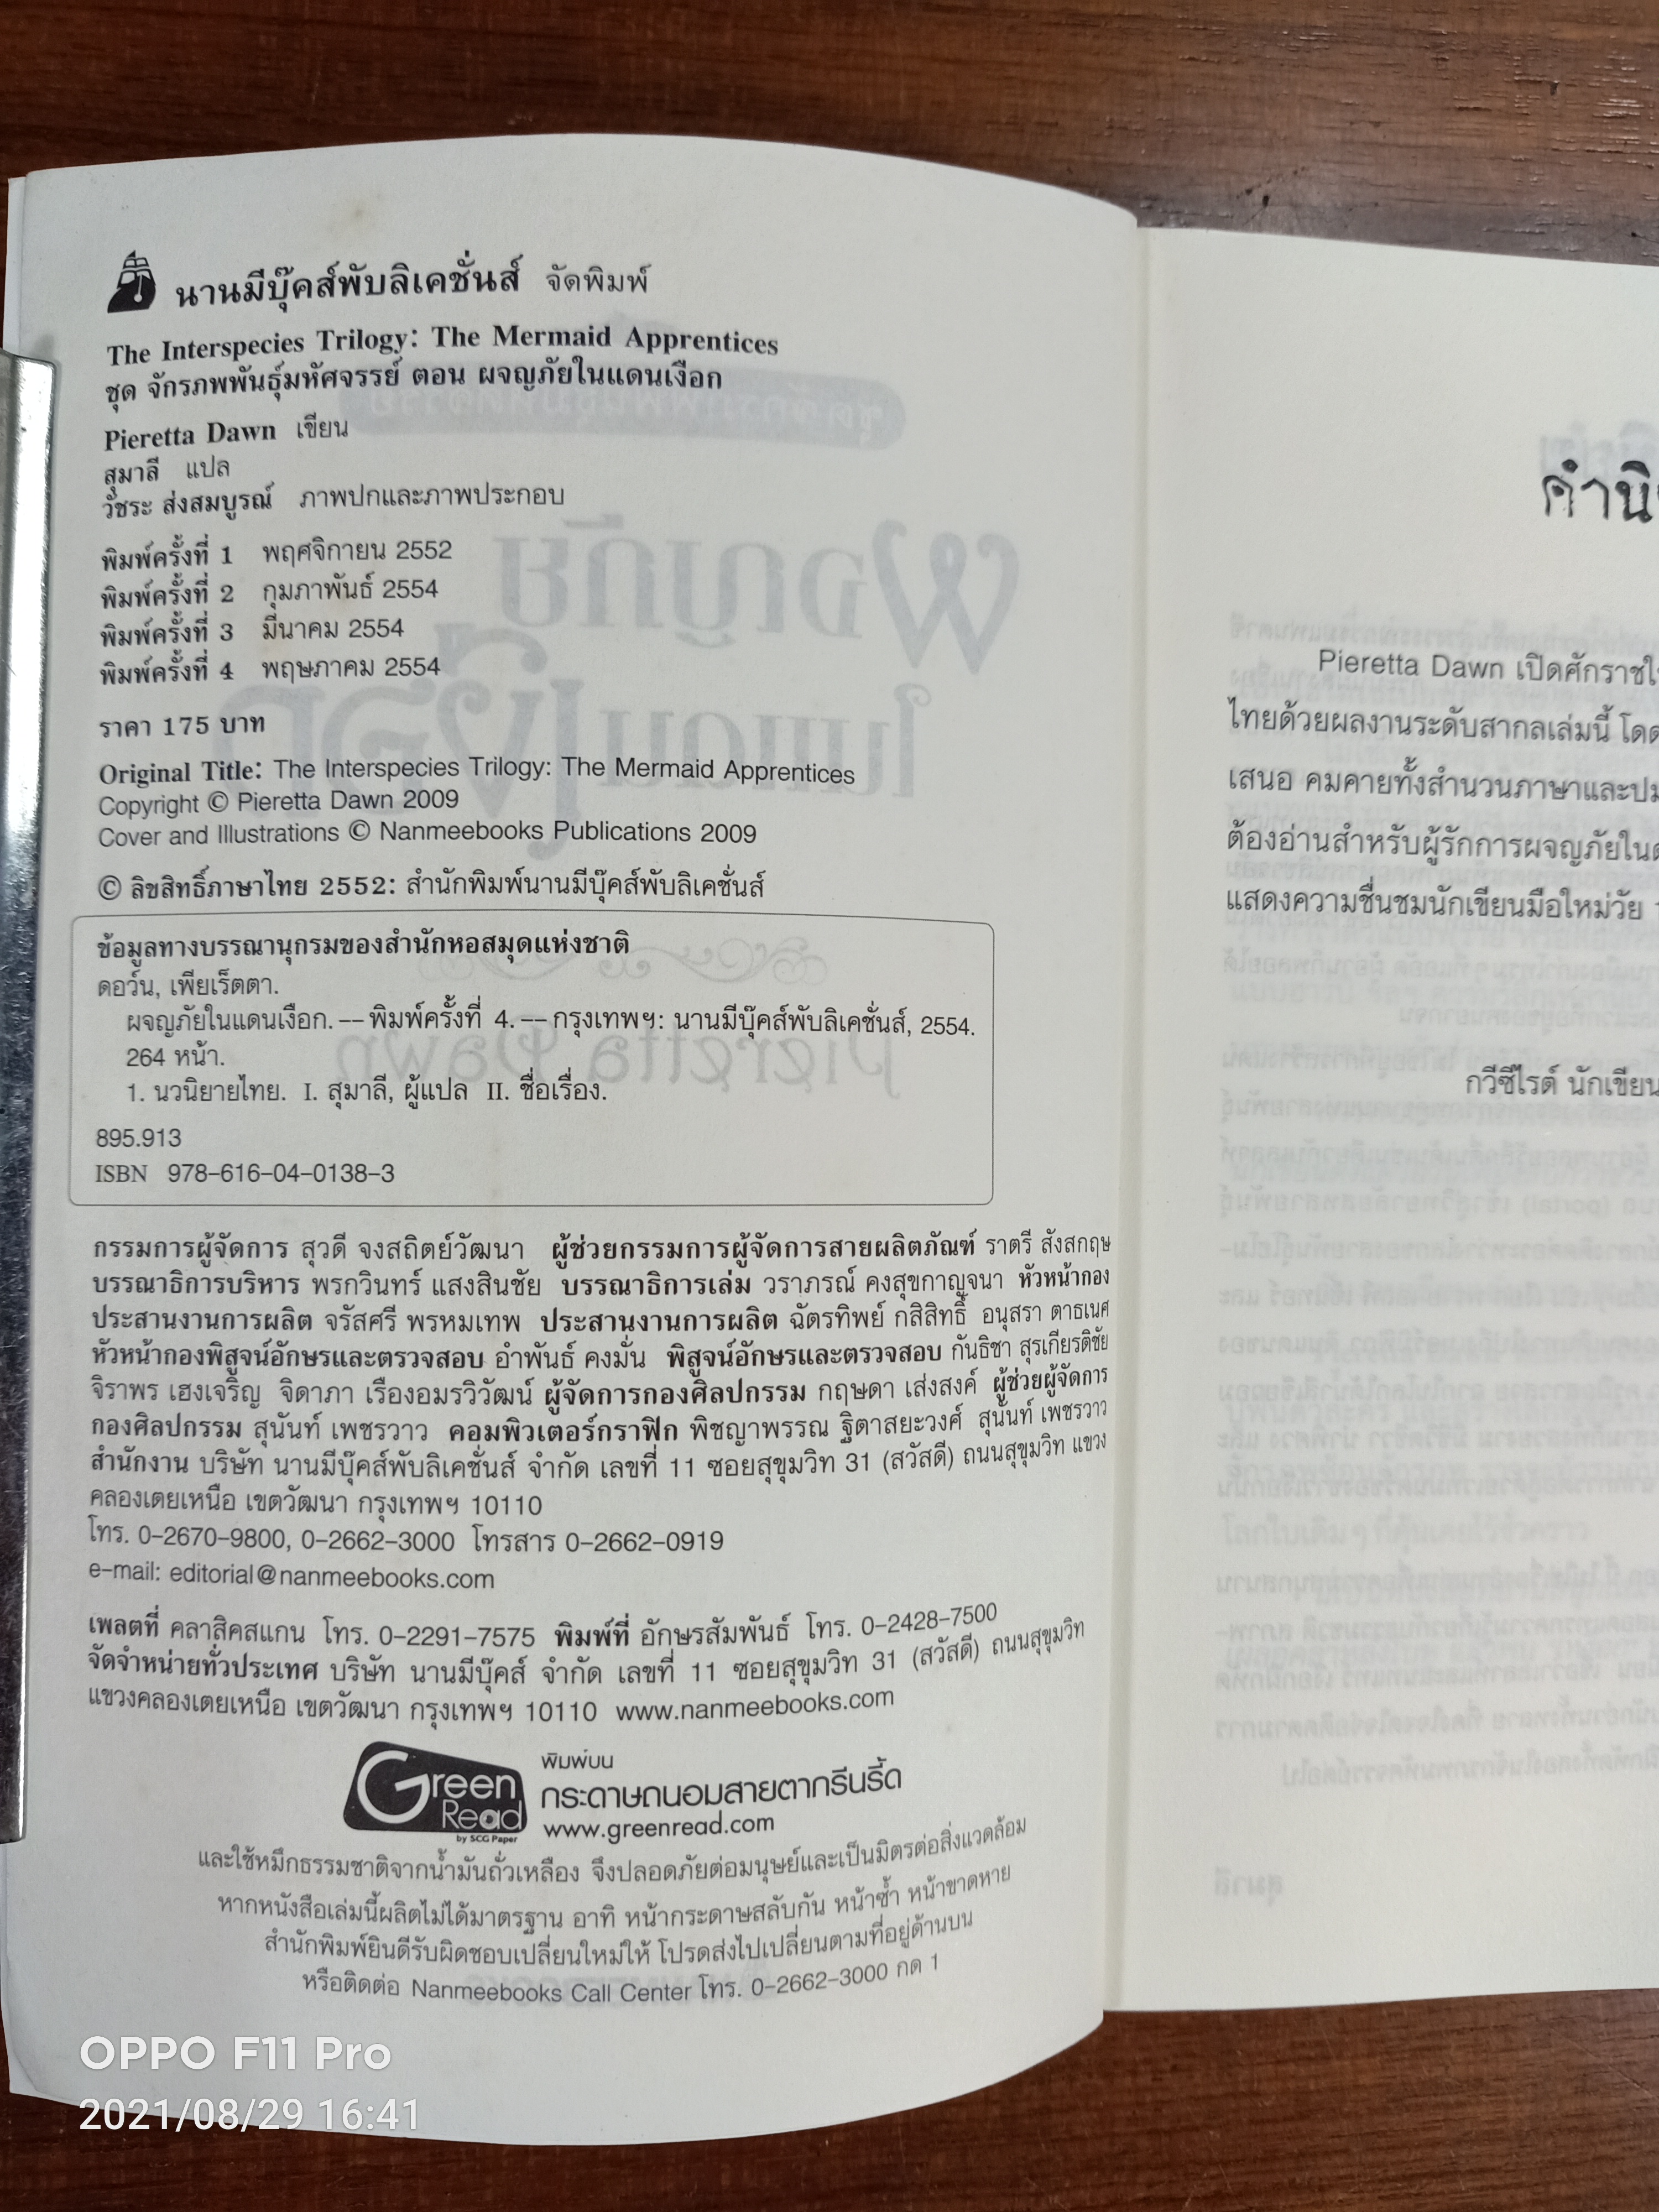 นานมีบุ๊คส์พับลิเคชั่นส์ จัดพิมพ์
The Interspecies Trilogy: The Mermaid Apprentices
ชุด จักรภพพันธุ์มหัศจรรย์ ตอน ผจญภัยในแดนเงือก
Pieretta Dawn เขียน
สุมาลี แปล
วัชระ ส่งสมบูรณ์ ภาพปกและภาพประกอบ
พิมพ์ครั้งที่ 1 พฤศจิกายน 2552
พิมพ์ครั้งที่ 2 กุมภาพันธ์ 2554
พิมพ์ครั้งที่ 3 มีนาคม 2554
พิมพ์ครั้งที่ 4 พฤษภาคม 2554
ราคา 175 บาท
Original Title: The Interspecies Trilogy: The Mermaid Apprentices
Copyright © Pieretta Dawn 2009
Cover and Illustrations © Nanmeebooks Publications 2009
© ลิขสิทธิ์ภาษาไทย 2552: สำนักพิมพ์นานมีบุ๊คส์พับลิเคชั่นส์
ข้อมูลทางบรรณานุกรมของสำนักหอสมุดแห่งชาติ
ดอว์น, เพียเร็ตตา.
ผจญภัยในแดนเงือก. -- พิมพ์ครั้งที่ 4. -- กรุงเทพฯ: นานมีบุ๊คส์พับลิเคชั่นส์, 2554.
264 หน้า.
1. นวนิยายไทย. I. สุมาลี, ผู้แปล II. ชื่อเรื่อง.
895.913
ISBN 978-616-04-0138-3
กรรมการผู้จัดการ สุวดี จงสถิตย์วัฒนา ผู้ช่วยกรรมการผู้จัดการสายผลิตภัณฑ์ ราตรี สังสกฤษ
บรรณาธิการบริหาร พรกวินทร์ แสงสินชัย บรรณาธิการเล่ม วราภรณ์ คงสุขกาญจนา หัวหน้ากอง
ประสานงานการผลิต จรัสศรี พรหมเทพ ประสานงานการผลิต ฉัตรทิพย์ กสิสิทธิ์ อนุสรา ตาธเนศ
หัวหน้ากองพิสูจน์อักษรและตรวจสอบ อำพันธ์ คงมั่น พิสูจน์อักษรและตรวจสอบ กันธิชา สุรเกียรติชัย
จิราพร เฮงเจริญ จิดาภา เรืองอมรวิวัฒน์ ผู้จัดการกองศิลปกรรม กฤษดา เส่งสงค์ ผู้ช่วยผู้จัดการ
กองศิลปกรรม สุนันท์ เพชรวาว คอมพิวเตอร์กราฟิก พิชญาพรรณ ฐิตาสยะวงศ์ สุนันท์ เพชรวาว
สำนักงาน บริษัท นานมีบุ๊คส์พับลิเคชั่นส์ จำกัด เลขที่ 11 ซอยสุขุมวิท 31 (สวัสดี) ถนนสุขุมวิท แขวง
คลองเตยเหนือ เขตวัฒนา กรุงเทพฯ 10110
โทร. 0-2670-9800, 0-2662-3000 โทรสาร 0-2662-0919
e-mail: editorial@nanmeebooks.com
เพลตที่ คลาสิคสแกน โทร. 0-2291-7575 พิมพ์ที่ อักษรสัมพันธ์ โทร. 0-2428-7500
จัดจำหน่ายทั่วประเทศ บริษัท นานมีบุ๊คส์ จำกัด เลขที่ 11 ซอยสุขุมวิท 31 (สวัสดี) ถนนสุขุมวิท
แขวงคลองเตยเหนือ เขตวัฒนา กรุงเทพฯ 10110 www.nanmeebooks.com
Green Read by SCG Paper
พิมพ์บน
กระดาษถนอมสายตากรีนรี้ด
www.greenread.com
และใช้หมึกธรรมชาติจากน้ำมันถั่วเหลือง จึงปลอดภัยต่อมนุษย์และเป็นมิตรต่อสิ่งแวดล้อม
หากหนังสือเล่มนี้ผลิตไม่ได้มาตรฐาน อาทิ หน้ากระดาษสลับกัน หน้าซ้ำ หน้าขาดหาย
สำนักพิมพ์ยินดีรับผิดชอบเปลี่ยนใหม่ให้ โปรดส่งไปเปลี่ยนตามที่อยู่ด้านบน
หรือติดต่อ Nanmeebooks Call Center โทร. 0-2662-3000 กด 1
Pieretta Dawn เปิดศักราช
ไทยด้วยผลงานระดับสากลเล่มนี้
เสนอ คมคายทั้งสำนวนภาษาและ
ต้องอ่านสำหรับผู้รักการผจญภัย
แสดงความชื่นชมนักเขียนมือใหม่วัย
กวีซีไรต์ นักเขียน
OPPO F11 Pro
2021/08/29 16:41